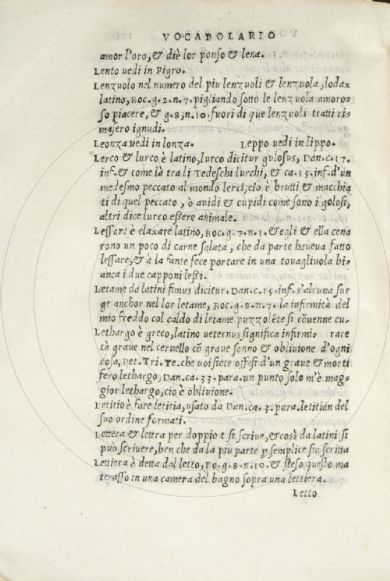 VOCABOLARIO
amor l'oro, & diè lor ponso & lena.
Lento uedi in Pigro.
Lenzuolo nel numero del piu lenzuoli & lenzuola, lodax
latino, Boc.g.2.n.7. pigliando sotto le lenzuola amoros
so piacere, & g.8.n.10. fuori di que lenzuoli tratti ris
masero ignudi.
Leonza uedi in lonza. Leppo uedi in lippo.
Lerco & lurco è latino, lurco dicitur gulosus, Dan.c.17.
inf. & come là tra li Tedeschi lurchi, & ca.15.inf. d'un
medesmo peccato al mondo lerci, cio è brutti & macchia
ti di quel peccato, o auidi & cupidi come sono i golosi,
altri dice lurco essere animale.
Lessare è elaxare latino, Boc.g.7.n.1. & egli & ella cena
rono un poco di carne salata, che da parte haueua fatto
lessare, & a la fante fece portare in una touagliuola bi-
anca i due capponi lessi.
Letame da latini fimus dicitur. Dan.c.15.inf. s'alcuna sur
ge anchor nel lor letame, Boc.g.8.n.7. la infirmità del
mio freddo col caldo di letame puzzolẽte si cõuenne cu-
Lethargo è greco, latino ueternus significa infirmi- rare
tà graue nel ceruello cõ graue sonno & obliuione d'ogni
cosa, Pet. Tri. Te. che uoi siete offesi d'un graue & morti
fero lethargo, Dan.ca.33.para. un punto solo m'è mag-
gior lethargo, cio è obliuione.
Letitio è fare letitia, usato da Dan.ca.3.para. letitian del
suo ordine formati.
Lettera & lettra per doppio t si scriue, & così da latini si
può scriuere, ben che da la piu parte p semplice sia scritta
Lettiera è detta dal letto, Bo.g.8.n.10. & steso questo ma
terasso in una camera del bagno sopra una lettiera.
Letto